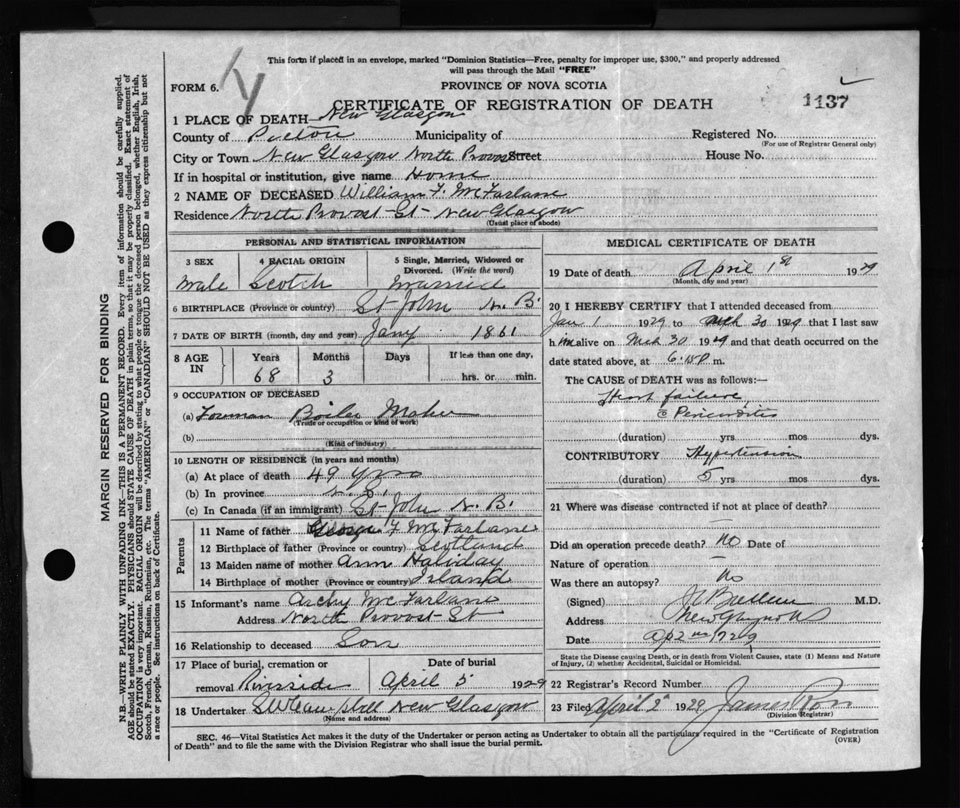 This form if placed in an envelope, marked "Dominion Statistics—Free, penalty for improper use, $300," and properly addressed
will pass through the Mail "FREE"
FORM 6.
PROVINCE OF NOVA SCOTIA
CERTIFICATE OF REGISTRATION OF DEATH
1137
1 PLACE OF DEATH New Glasgow
County of Pictou Municipality of Registered No.
(For use of Registrar General only)
City or Town New Glasgow North Provost Street House No.
If in hospital or institution, give name Home
2 NAME OF DECEASED William F. McFarlane
Residence North Provost St New Glasgow
(Usual place of abode)
MARGIN RESERVED FOR BINDING
N.B.—WRITE PLAINLY WITH UNFADING INK—THIS IS A PERMANENT RECORD. Every item of information should be carefully supplied.
AGE should be stated EXACTLY. PHYSICIANS should STATE CAUSE OF DEATH in plain terms, so that it may be properly classified. Exact statement of
OCCUPATION is very important. RACIAL ORIGIN will be described by stating to what people or tongue the deceased person belonged, whether English, Irish,
Scotch, French, German, Russian, Ruthenian, etc. The terms "AMERICAN" or "CANADIAN" SHOULD NOT BE USED as they express citizenship but not
a race or people. See instructions on back of Certificate.
PERSONAL AND STATISTICAL INFORMATION
3 SEX 4 RACIAL ORIGIN 5 Single, Married, Widowed or
Divorced. (Write the word)
Male Scotch Married
6 BIRTHPLACE (Province or country) St John N. B.
7 DATE OF BIRTH (month, day and year) Jany 1861
8 AGE IN Years Months Days If less than one day,
68 3 hrs. or min.
9 OCCUPATION OF DECEASED
(a) Forman Boiler Maker
(Trade or occupation or kind of work)
(b)
(Kind of industry)
10 LENGTH OF RESIDENCE (in years and months)
(a) At place of death 49 yrs
(b) In province
(c) In Canada (if an immigrant) St John N. B.
Parents
11 Name of father George F McFarlane
12 Birthplace of father (Province or country) Scotland
13 Maiden name of mother Ann Haliday
14 Birthplace of mother (Province or country) Island
15 Informant's name Archy McFarlane
Address North Provost St
16 Relationship to deceased Son
17 Place of burial, cremation or Date of burial
removal Riverside April 5 1929
18 Undertaker New Glasgow
(Name and address)
MEDICAL CERTIFICATE OF DEATH
19 Date of death April 1st 1929
(Month, day and year)
20 I HEREBY CERTIFY that I attended deceased from
Jan 1 1929 to Mch 30 1929 that I last saw
him alive on Mch 30 1929 and that death occurred on the
date stated above, at 6.15 P m.
The CAUSE OF DEATH was as follows:—
Heart failure
c Pericarditis
(duration) yrs mos dys.
CONTRIBUTORY Hypertension
(duration) 5 yrs mos dys.
21 Where was disease contracted if not at place of death?
Did an operation precede death? No Date of
Nature of operation
Was there an autopsy? No
(Signed) M.D.
Address
Date Ap 2nd 1929
State the Disease causing Death, or in death from Violent Causes, state (1) Means and Nature
of Injury, (2) whether Accidental, Suicidal or Homicidal.
22 Registrar's Record Number
23 Filed April 2 1929 James
(Division Registrar)
SEC. 46—Vital Statistics Act makes it the duty of the Undertaker or person acting as Undertaker to obtain all the particulars required in the "Certificate of Registration
of Death" and to file the same with the Division Registrar who shall issue the burial permit.
(OVER)